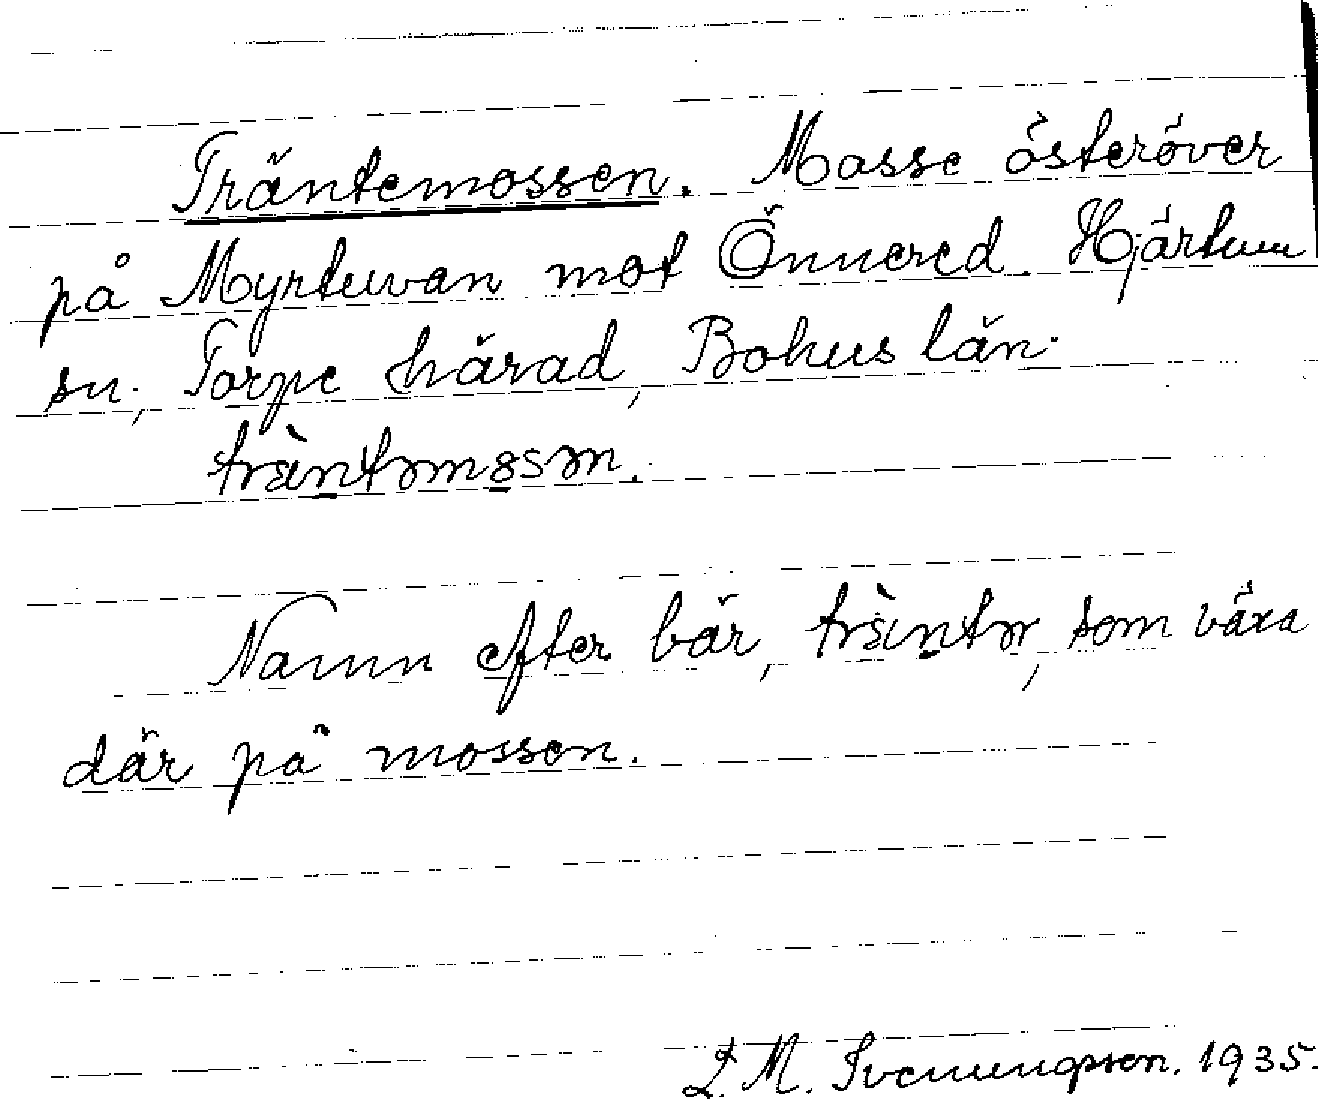 Träntemossen. Mosse österöver
på Myrtuvan mot Önnered. Hjärtum
sn., Torpe härad, Bohus län.
träntəmosən.
Namn efter bär, träntər, som växa
där på mossen.
L. M. Svenungsson. 1935.